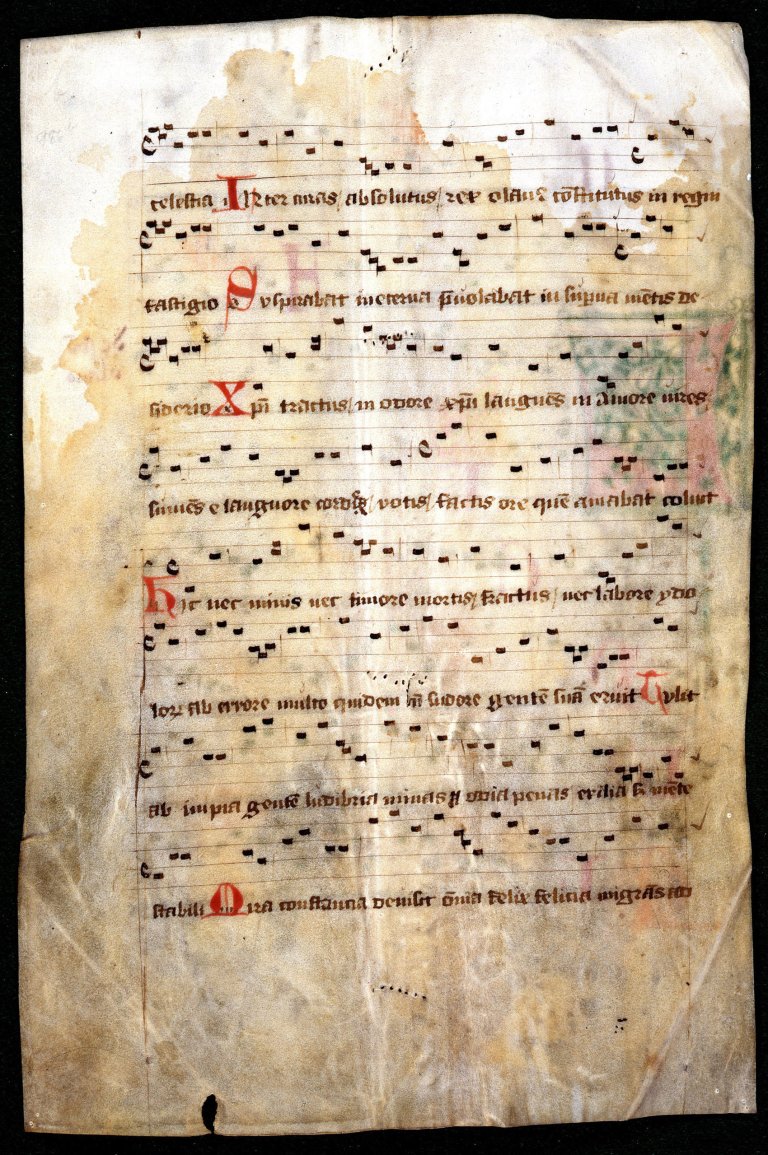 celestia Inter arma absolutus rex olauus cōstitutus in regni
fastigio Suspirabat in eterna p̄uolabat in sup̄na mētis de
siderio Xp̄i tractus in odore xp̄i languēs in amore vires
sumēs e languore cordis votis factis ore quē amabat coluit
Hic nec minis nec timore mortis fractus nec labore ydo
lorꝝ ab errore multo quidem in sudore gentē suā eruit Tulit
ab impia gentē ludibria minas odia penas exilia mēte
stabili Mira constancia deuisit ōnia felix felicia migrās